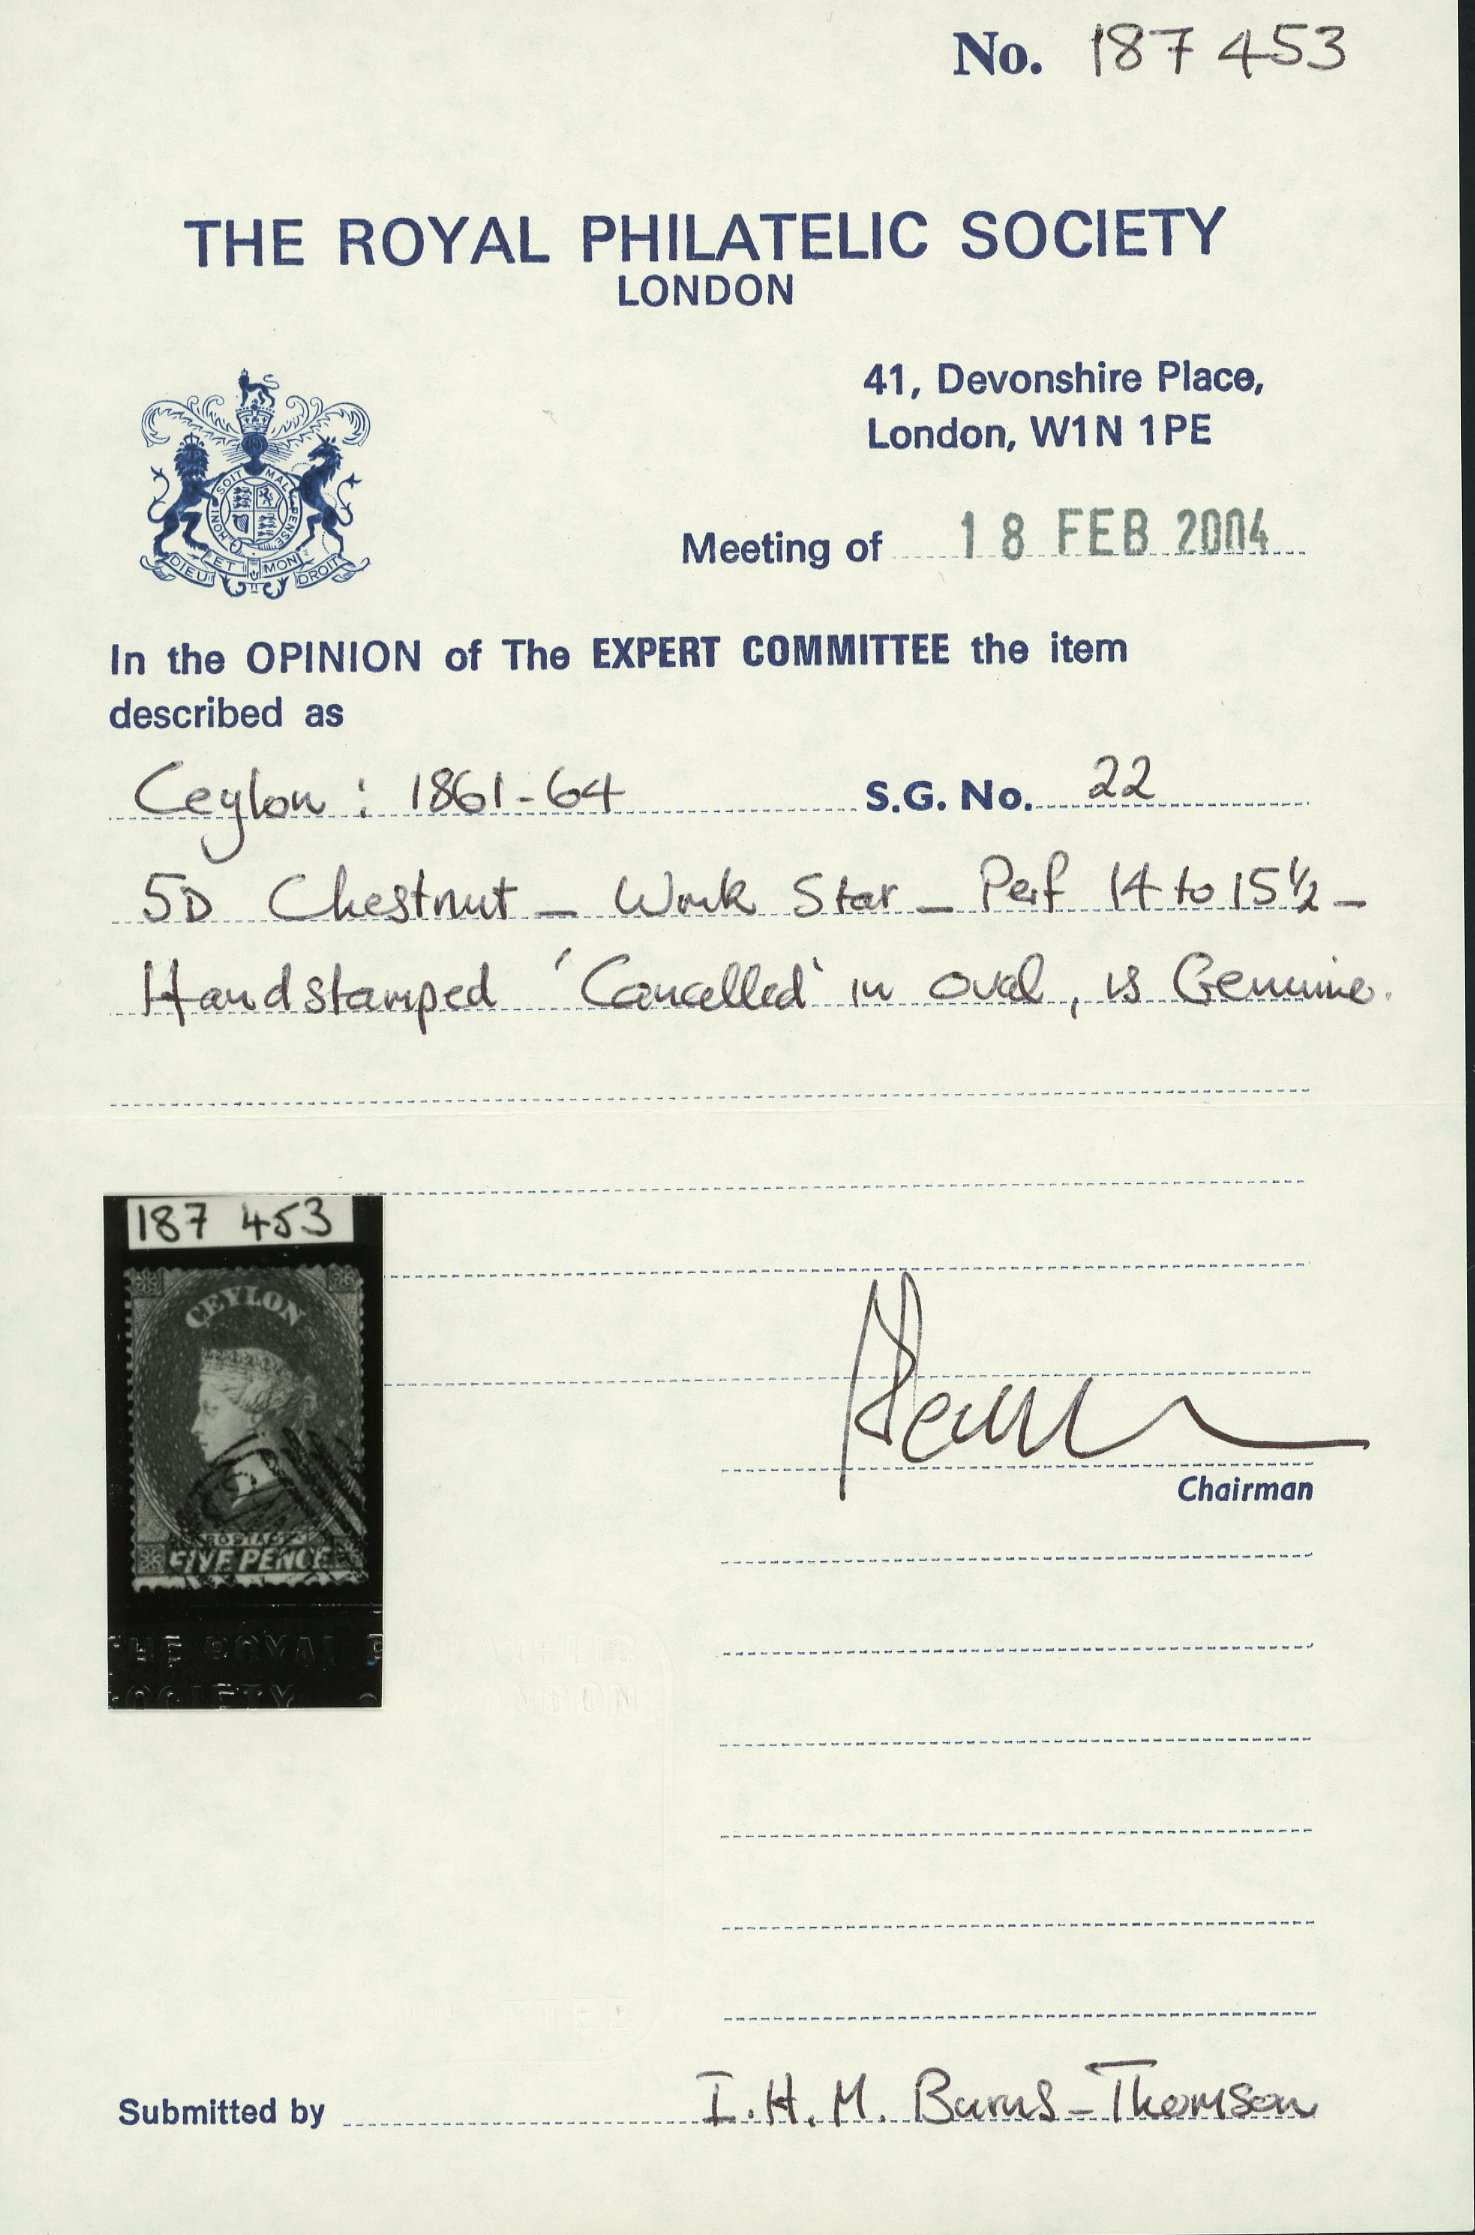 No. 187 453
THE ROYAL PHILATELIC SOCIETY
LONDON
41, Devonshire Place,
London, W1N 1PE
HONI SOIT MAL PENSE
DIEU ET MON DROIT
Meeting of 18 FEB 2004
In the OPINION of The EXPERT COMMITTEE the item
described as
Ceylon : 1861-64 S.G. No. 22
5D Chestnut - Wmk Star - Perf 14 to 15½ -
Handstamped 'Cancelled' in oval, is Genuine.
187 453
CEYLON
POSTAGE
FIVE PENCE
THE ROYAL P
SOCIETY
Chairman
Submitted by I.H.M. Burns-Thomson